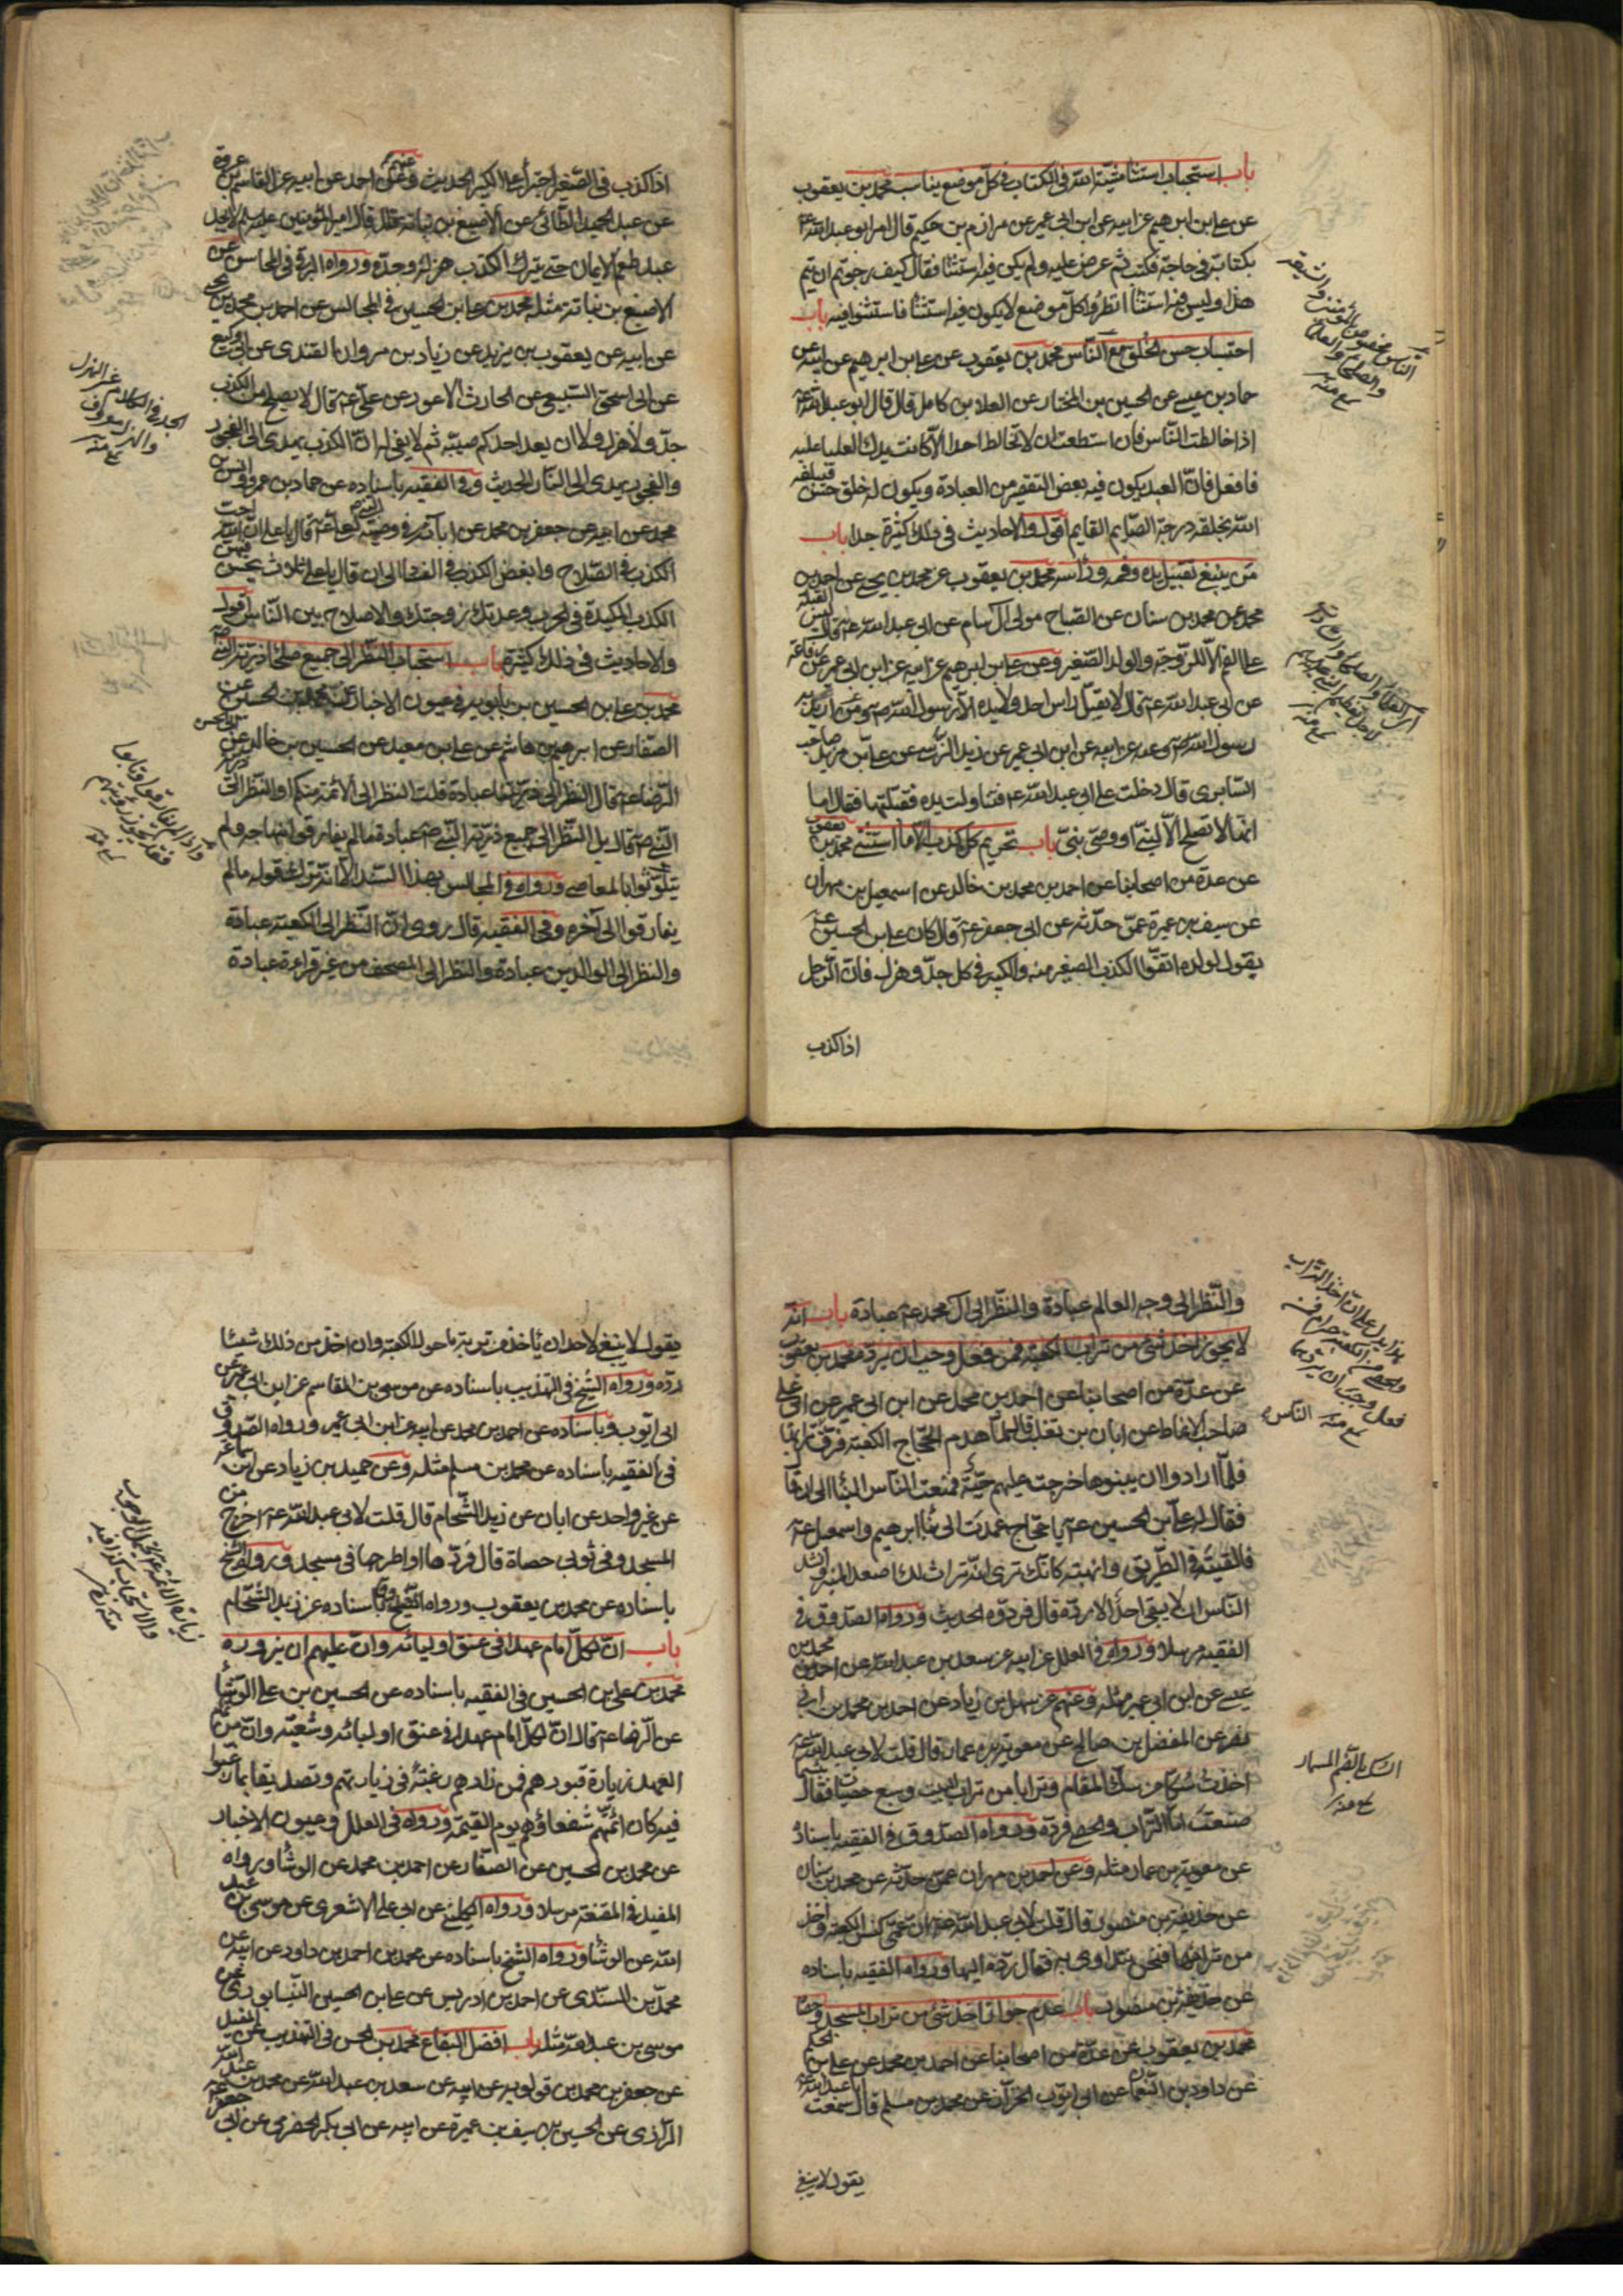 باب استحباب استثناء مشية الله في الكتاب في كل موضع يناسب محمد بن يعقوب
عن علي بن ابرهيم عن ابيه عن ابن ابي عمير عن مرازم بن حكيم قال امر ابو عبد الله ع
بكتاب في حاجة فكتب ثم عرض عليه ولم يكن فيه استثناء فقال كيف رجوتم ان يتم
هذا وليس فيه استثناء انظروا كل موضع لا يكون فيه استثناء فاستثنوا فيه باب
احتساب حسن الخلق مع الناس محمد بن يعقوب عن علي بن ابرهيم عن ابيه عن
حماد بن عيسى عن الحسين بن المختار عن العلا بن كامل قال قال ابو عبد الله ع
اذا خالطت الناس فان استطعت ان لا تخالط احدا الا كانت يدك العليا عليه
فافعل فان العبد يكون فيه بعض التقصير من العبادة ويكون له خلق حسن فيبلغه
الله بخلقه درجة الصايم القايم اقول والاحاديث في ذلك كثيرة جدا باب
من ينبغي تقبيل يده وفمه وراسه محمد بن يعقوب عن محمد بن يحيى عن احمد بن
محمد عن محمد بن سنان عن الصباح مولى آل سام عن ابي عبد الله ع قال ليس القبلة
على الفم الا للزوجة والولد الصغير وعن علي بن ابرهيم عن ابيه عن ابن ابي عمير عن رفاعة
عن ابي عبد الله ع قال لا يقبل راس احد ولا يده الا رسول الله ص او من اريد به
رسول الله ص وعنه عن ابيه عن ابن ابي عمير عن زيد النرسي عن علي بن مزيد صاحب
السابري قال دخلت على ابي عبد الله ع فتناولت يده فقبلتها فقال اما
انها لا تصلح الا لنبي او وصي نبي باب تحريم كل كذب الا ما استثني محمد بن يعقوب
عن عدة من اصحابنا عن احمد بن محمد بن خالد عن اسمعيل بن مهران
عن سيف بن عميرة عمن حدثه عن ابي جعفر ع قال كان علي بن الحسين ع
يقول لولده اتقوا الكذب الصغير منه والكبير في كل جد وهزل فان الرجل
اذا كذب
اذا كذب في الصغير اجترأ على الكبير الحديث وعنهم عن احمد عن ابيه عن القاسم بن عروة
عن عبد الحميد الطائي عن الاصبغ بن نباته قال قال امير المؤمنين عليه السلم لا يجد
عبد طعم الايمان حتى يترك الكذب هزله وجده ورواه البرقي في المحاسن عن
الاصبغ بن نباتة مثله محمد بن علي بن الحسين في المجالس عن احمد بن محمد بن يحيى
عن ابيه عن يعقوب بن يزيد عن زياد بن مروان القندي عن ابي وكيع
عن ابي اسحق السبيعي عن الحارث الاعور عن علي ع قال لا يصلح من الكذب
جد ولا هزل ولا ان يعد احدكم صبيه ثم لا يفي له ان الكذب يهدي الى الفجور
والفجور يهدي الى النار الحديث وفي الفقيه باسناده عن حماد بن عمرو وانس بن
محمد عن ابيه عن جعفر بن محمد عن آبائه في وصية النبي ص لعلي ع قال يا علي ان الله احب
الكذب في الصلاح وابغض الكذب في الفساد الى ان قال يا علي ثلاث يحسن فيهن
الكذب المكيدة في الحرب وعدتك زوجتك والاصلاح بين الناس اقول
والاحاديث في ذلك كثيرة باب استحباب النظر الى جميع صلحاء ذرية النبي ص
محمد بن علي بن الحسين بن بابويه في عيون الاخبار عن محمد بن الحسن عن
الصفار عن ابرهيم بن هاشم عن علي بن معبد عن الحسين بن خالد عن ابي الحسن
الرضا ع قال النظر الى ذريتنا عبادة قلت النظر الى الائمة منكم او النظر الى ذرية
النبي ص قال بل النظر الى جميع ذرية النبي ص عبادة ما لم يفارقوا منهاجه ولم
يتلوثوا بالمعاصي ورواه في المجالس بهذا السند الا انه ترك قوله ما لم
يفارقوا الى آخره وفي الفقيه قال روي ان النظر الى الكعبة عبادة
والنظر الى الوالدين عبادة والنظر الى المصحف من غير قراءة عبادة
والنظر الى وجه العالم عبادة والنظر الى آل محمد ع عبادة باب انه
لا يجوز اخذ شئ من تراب الكعبة فمن فعل وجب ان يرده محمد بن يعقوب
عن عدة من اصحابنا عن احمد بن محمد عن ابن ابي عمير عن ابي علي
صاحب الانماط عن ابان بن تغلب قال لما هدم الحجاج الكعبة فرق الناس ترابها
فلما ارادوا ان يبنوها خرجت عليهم حية فمنعت الناس البناء الى ان قال
فقال له علي بن الحسين ع يا حجاج عمدت الى بناء ابرهيم واسمعيل ع
فالقيته في الطريق وانهبته كانك ترى انه تراث لك اصعد المنبر وانشد
الناس ان لا يبقى احد اخذ منه شيئا الا رده قال فردوه الحديث ورواه الصدوق في
الفقيه مرسلا ورواه في العلل عن ابيه عن سعد بن عبد الله عن احمد بن محمد بن
عيسى عن ابن ابي عمير مثله وعنهم عن سهل بن زياد عن احمد بن محمد بن ابي
نصر عن المفضل بن صالح عن معوية بن عمار قال قلت لابي عبد الله ع
اخذت سكا من سك المقام وترابا من تراب البيت وسبع حصيات فقال بئسما
صنعت اما التراب والحصى فرده ورواه الصدوق في الفقيه باسناده
عن معوية بن عمار مثله وعن احمد بن مهران عمن حدثه عن محمد بن سنان
عن حذيفة بن منصور قال قلت لابي عبد الله ع ان عمي كنس الكعبة واخذ
من ترابها فنحن نتداوى به فقال رده اليها ورواه الفقيه باسناده
عن حذيفة بن منصور باب عدم جواز اخذ شئ من تراب المسجد وحصاه
محمد بن يعقوب عن عدة من اصحابنا عن احمد بن محمد عن علي بن الحكم
عن داود بن النعمان عن ابي ايوب الخزاز عن محمد بن مسلم قال سمعت ابا عبد الله ع
يقول لا ينبغي
يقول لا ينبغي لاحد ان ياخذ من تربة ما حول الكعبة وان اخذ من ذلك شيئا
رده ورواه الشيخ في التهذيب باسناده عن موسى بن القاسم عن ابن ابي عمير عن
ابي ايوب وباسناده عن احمد بن محمد عن ابيه عن ابن ابي عمير ورواه الصدوق
في الفقيه باسناده عن محمد بن مسلم مثله وعن حميد بن زياد عن ابن سماعة
عن غير واحد عن ابان عن زيد الشحام قال قلت لابي عبد الله ع اخرج من
المسجد وفي ثوبي حصاة قال فردها او اطرحها في مسجد ورواه الشيخ
باسناده عن محمد بن يعقوب ورواه الصدوق باسناده عن زيد الشحام
باب ان لكل امام عهدا في عنق اوليائه وان عليهم ان يزوروه
محمد بن علي بن الحسين في الفقيه باسناده عن الحسين بن علي الوشاء
عن الرضا ع قال ان لكل امام عهدا في عنق اوليائه وشيعته وان من تمام
العهد زيارة قبورهم فمن زارهم رغبة في زيارتهم وتصديقا بما رغبوا
فيه كان ائمتهم شفعاؤهم يوم القيمة ورواه في العلل وعيون الاخبار
عن محمد بن الحسن عن الصفار عن احمد بن محمد عن الوشاء ورواه
المفيد في المقنعة مرسلا ورواه الكليني عن ابي علي الاشعري عن موسى بن عبد
الله عن الوشاء ورواه الشيخ باسناده عن محمد بن احمد بن داود عن ابيه عن
محمد بن السندي عن احمد بن ادريس عن علي بن الحسين النيسابوري عن
موسى بن عبد الله مثله باب افضل البقاع محمد بن الحسن في التهذيب عن المفيد
عن جعفر بن محمد بن قولويه عن ابيه عن سعد بن عبد الله عن محمد بن عبد الله
الرازي عن الحسين بن سيف بن عميرة عن ابيه عن ابي بكر الحضرمي عن ابي جعفر ع